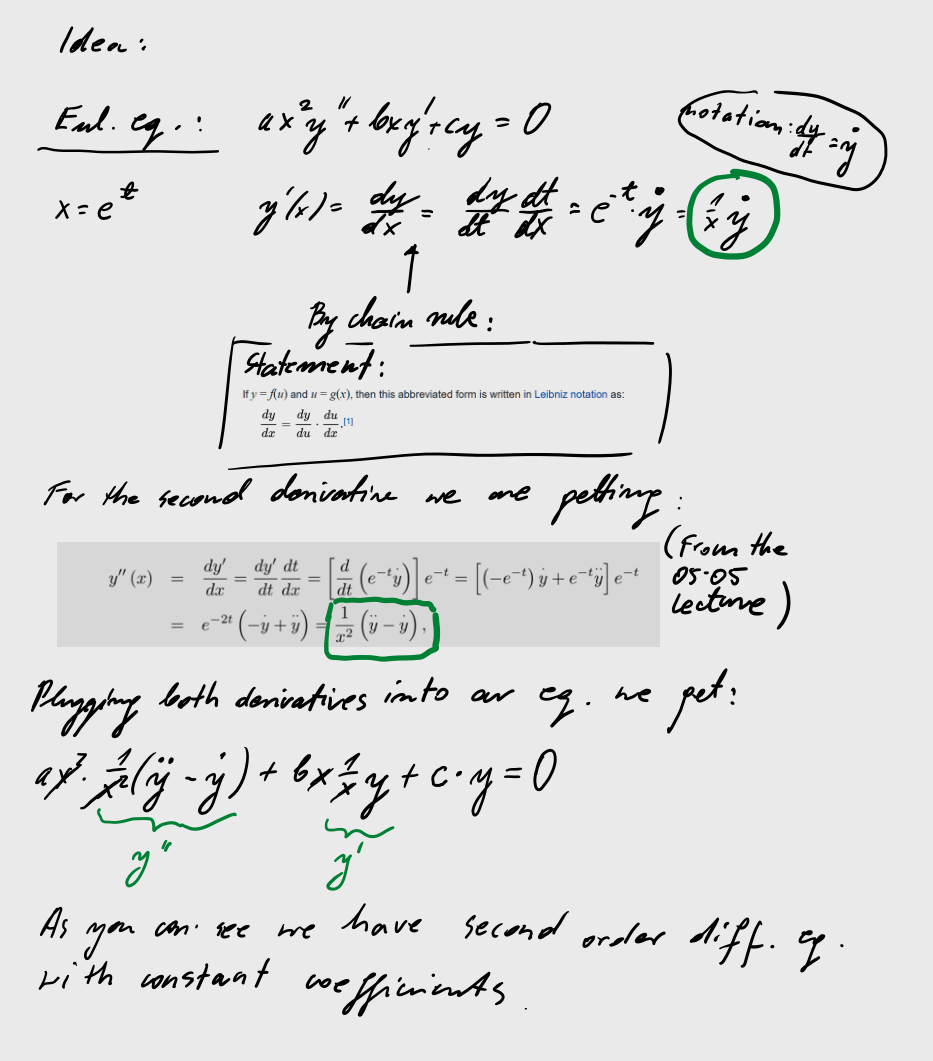 Idea:
Eul. eq.: ax²y'' + bxy' + cy = 0
notation: dy/dt = ẏ
x = e^t y'(x) = dy/dx = dy/dt dt/dx = e^-t · ẏ = 1/x ẏ
By chain rule:
Statement:
If y = f(u) and u = g(x), then this abbreviated form is written in Leibniz notation as:
dy/dx = dy/du · du/dx.[1]
For the second derivative we are getting:
y''(x) = dy'/dx = dy'/dt dt/dx = [d/dt (e^-t ẏ)] e^-t = [(-e^-t) ẏ + e^-t ÿ] e^-t
= e^-2t (-ẏ + ÿ) = 1/x² (ÿ - ẏ),
(From the
05.05
lecture)
Plugging both derivatives into our eq. we get:
ax² · 1/x² (ÿ - ẏ) + bx 1/x y + c · y = 0
y'' y'
As you can see we have second order diff. eq.
with constant coefficients.